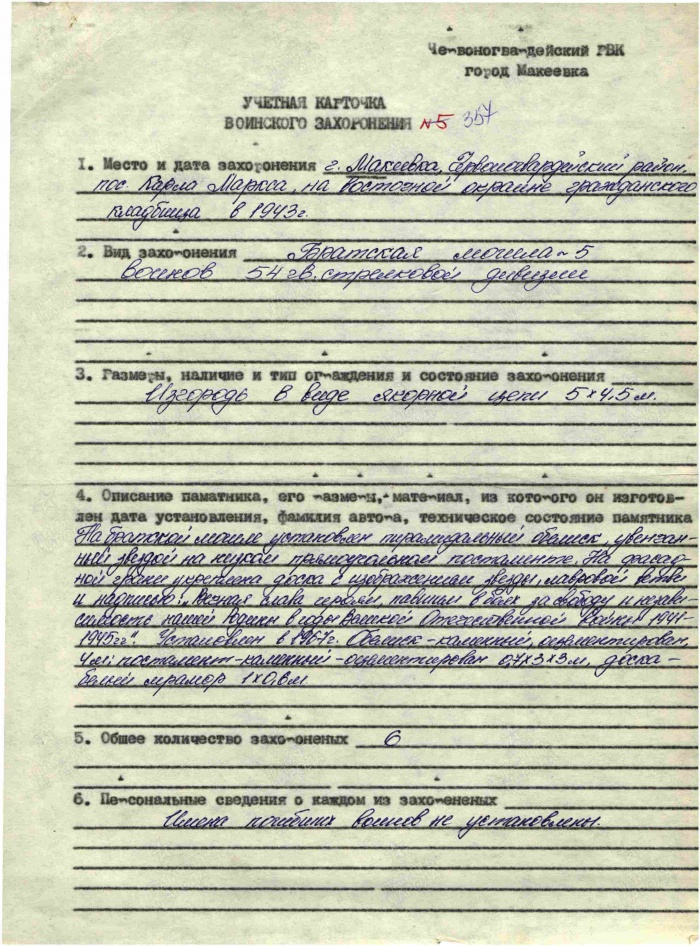 Червоногвардейский РВК
город Макеевка
УЧЕТНАЯ КАРТОЧКА
ВОИНСКОГО ЗАХОРОНЕНИЯ №5 357
1. Место и дата захоронения г. Макеевка, Червоногвардейский район,
пос. Карла Маркса, на восточной окраине гражданского
кладбища в 1943г.
2. Вид захоронения Братская могила 5
воинов 54 гв. стрелковой дивизии
3. Размеры, наличие и тип ограждения и состояние захоронения
Изгородь в виде якорной цепи 5×4,5 м.
4. Описание памятника, его размеры, материал, из которого он изготов-
лен дата установления, фамилия автора, техническое состояние памятника
На братской могиле установлен пирамидальный обелиск, увенчан-
ный звездой на низком прямоугольном постаменте. На фасад-
ной грани укреплена доска с изображением звезды, лавровой ветви
и надписью: „Вечная слава героям, павшим в боях за свободу и незави-
симость нашей Родины в годы Великой Отечественной войны 1941-
1945гг". Установлен в 1967г. Обелиск-каменный, оцементирован,
4м; постамент-каменный-оцементирован 0,7×3×3м, доска-
белый мрамор 1×0,8м
5. Общее количество захоронеых 6
6. Персональные сведения о каждом из захоренеых
Имена погибших воинов не установлены.